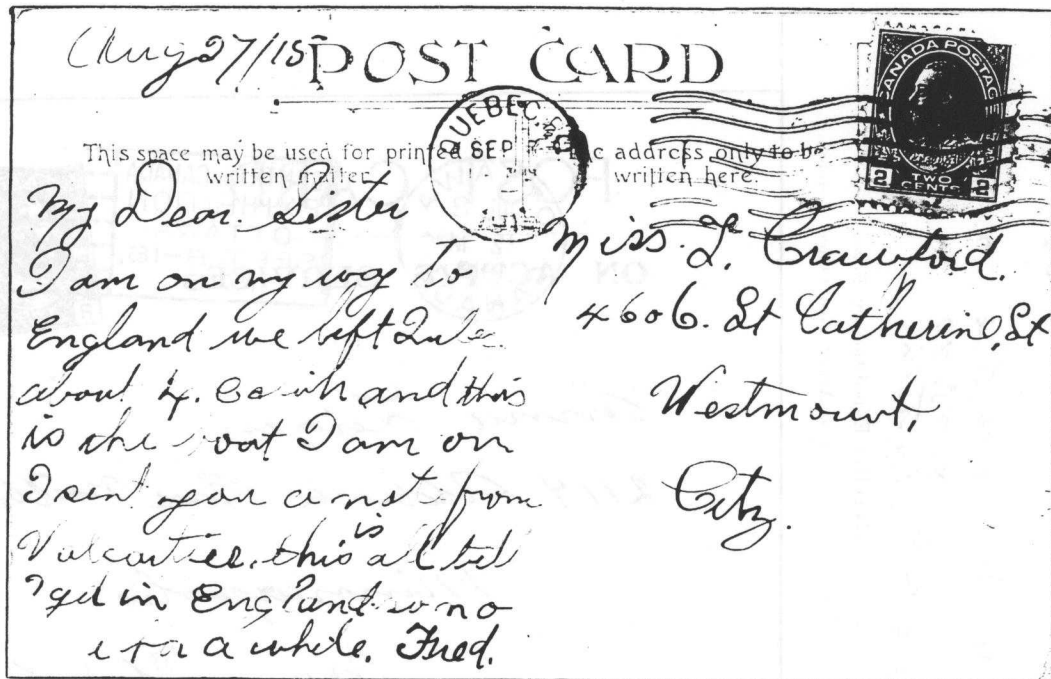 Aug 27/15
POST CARD
QUEBEC
SEP
CANADA POSTAGE
2 TWO CENTS 2
This space may be used for printed
written matter
address only to be
written here.
My Dear. Sister
I am on my way to
England we left
about 4. and this
is the boat I am on
I sent you a not from
this is all till
I get in England so no
for a while. Fred.
Miss. L. Crawford.
4606. St Catherine, St
Westmount,
City.